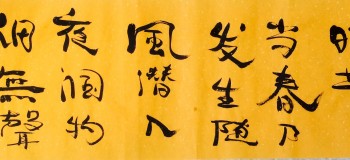 当春乃
发生随
風潜入
夜润物
細無聲